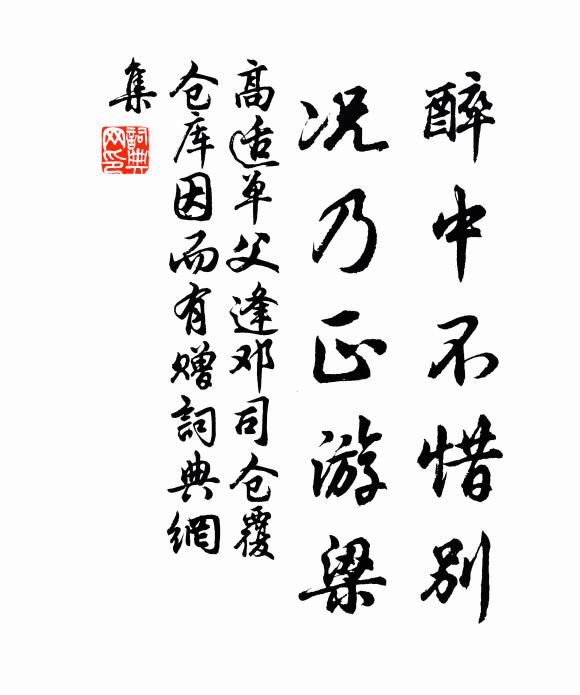 醉中不惜别
况乃正游梁
高适单父逢邓司仓覆
仓库因而有赠詞典網
集
詞典网印